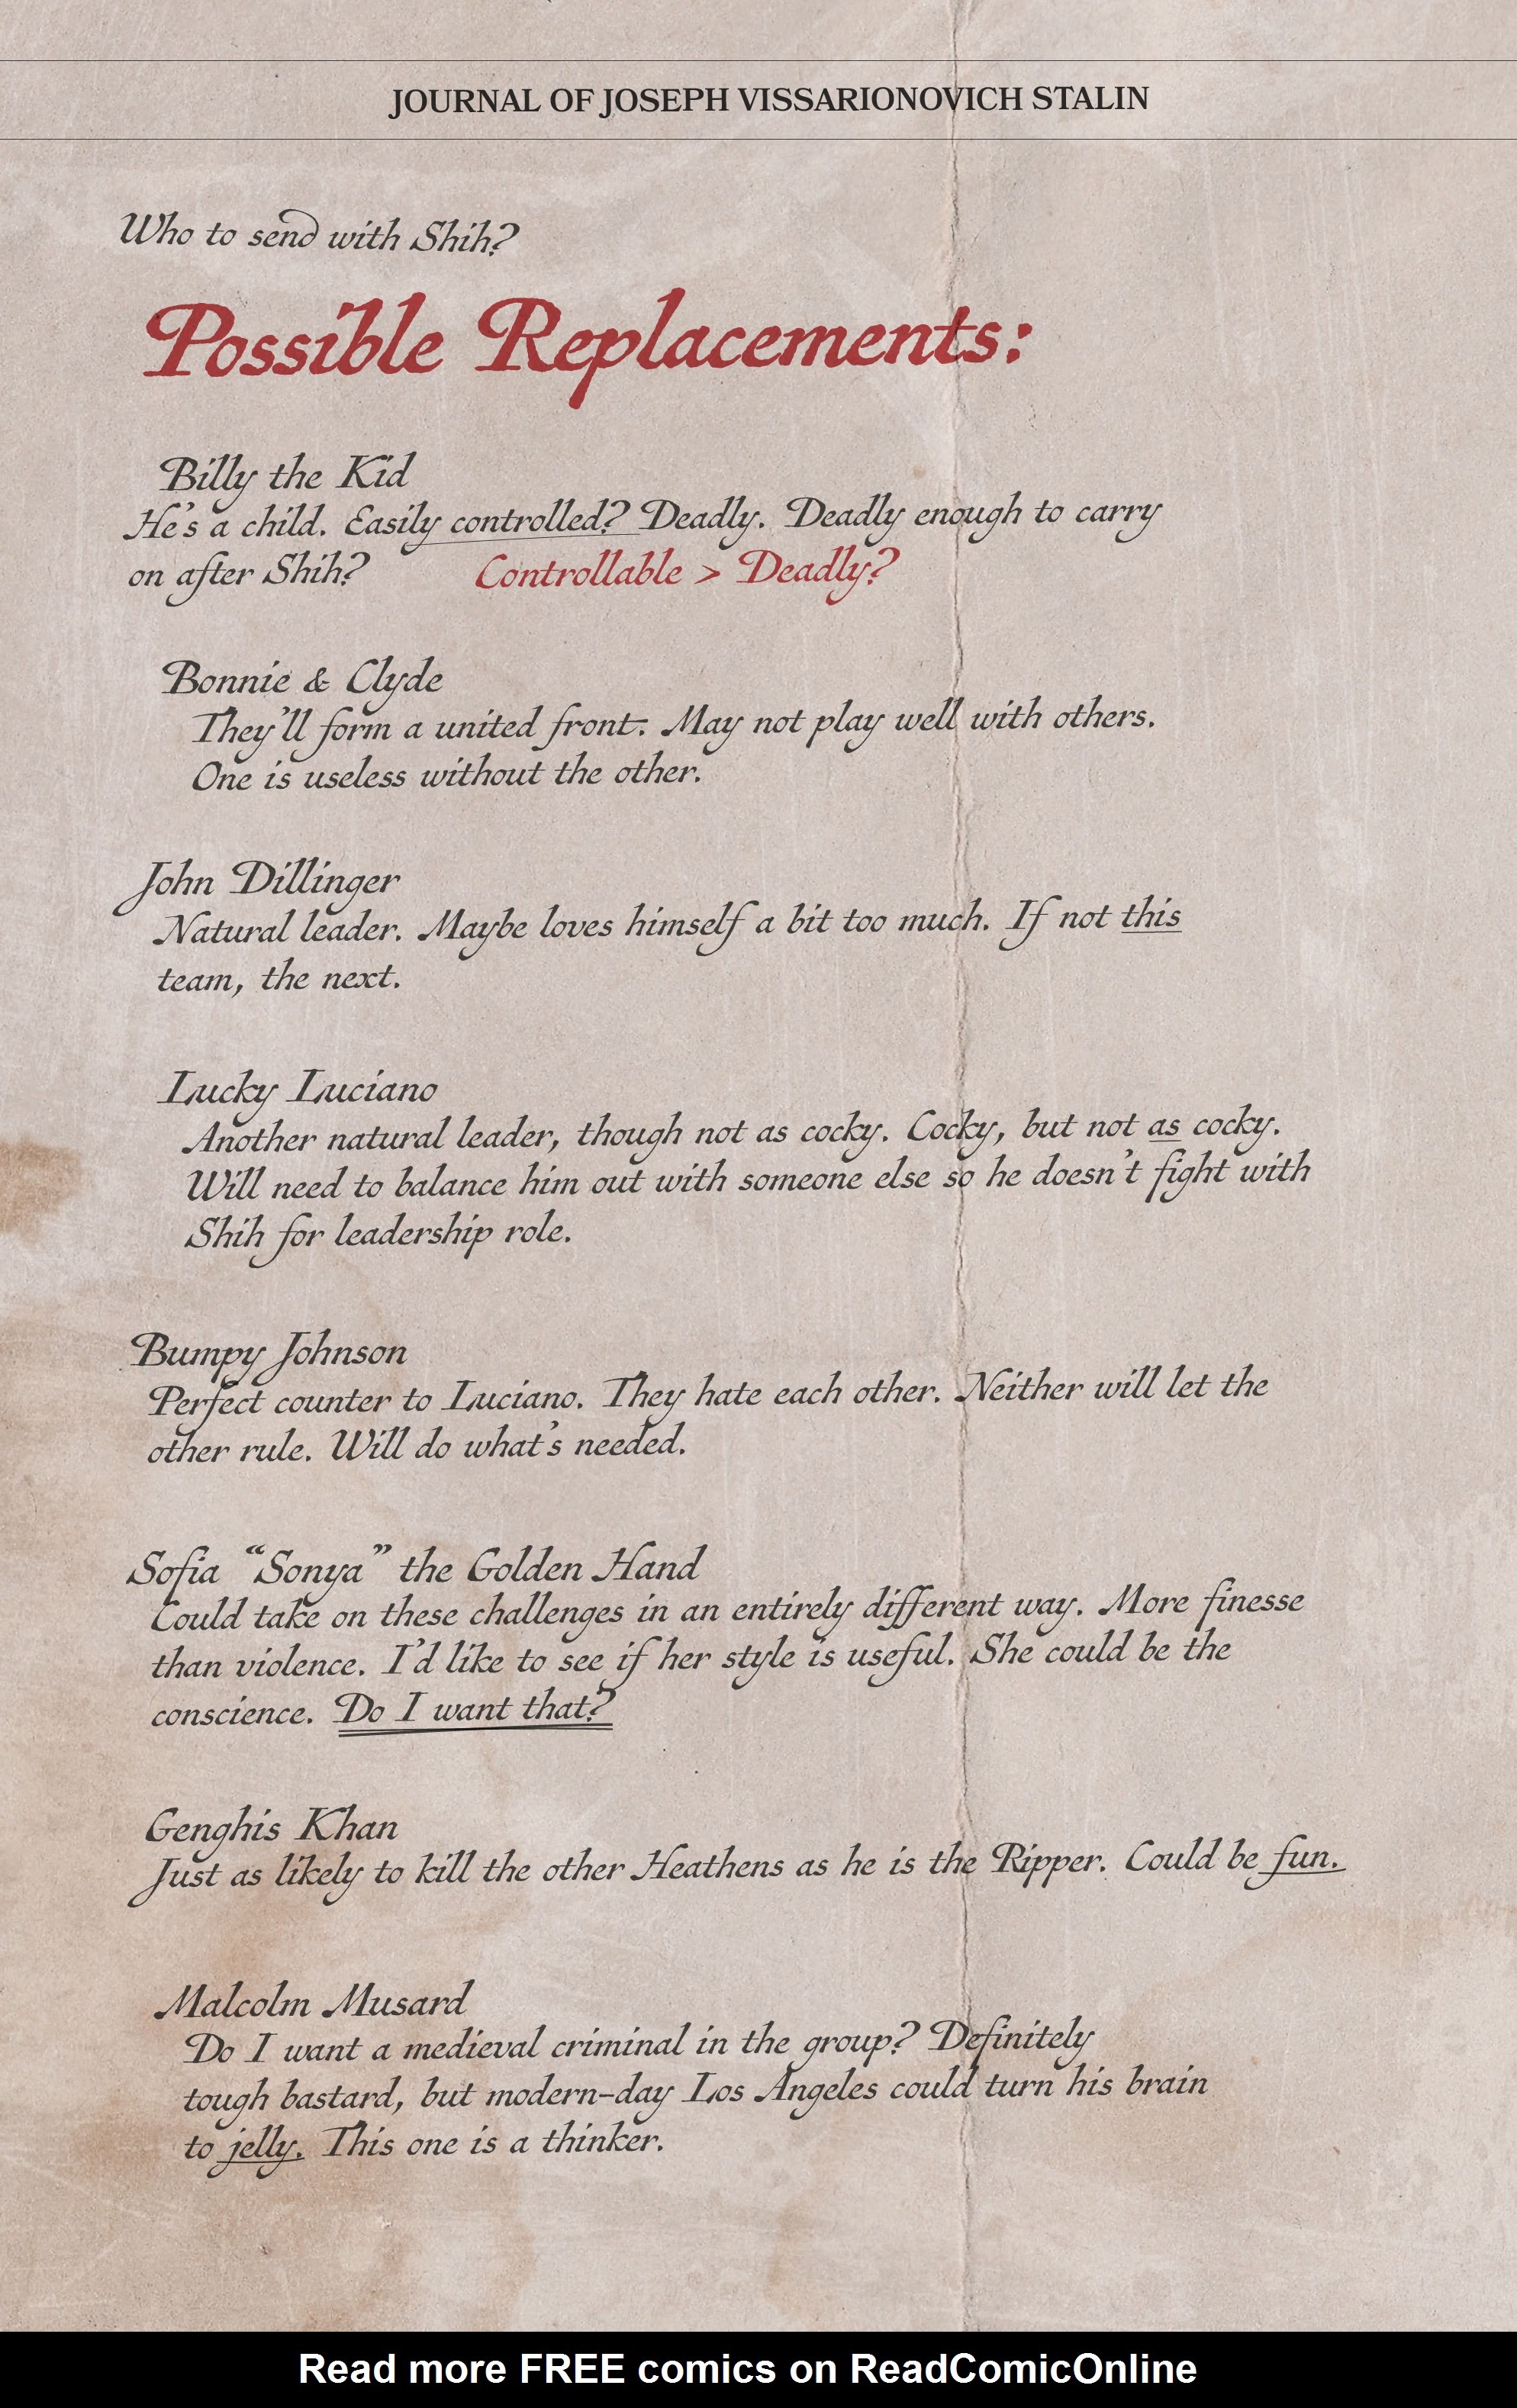 JOURNAL OF JOSEPH VISSARIONOVICH STALIN
Who to send with Shih?
Possible Replacements:
Billy the Kid
He's a child. Easily controlled? Deadly. Deadly enough to carry
on after Shih? Controllable > Deadly?
Bonnie & Clyde
They'll form a united front. May not play well with others.
One is useless without the other.
John Dillinger
Natural leader. Maybe loves himself a bit too much. If not this
team, the next.
Lucky Luciano
Another natural leader, though not as cocky. Cocky, but not as cocky.
Will need to balance him out with someone else so he doesn't fight with
Shih for leadership role.
Bumpy Johnson
Perfect counter to Luciano. They hate each other. Neither will let the
other rule. Will do what's needed.
Sofia “Sonya” the Golden Hand
Could take on these challenges in an entirely different way. More finesse
than violence. I'd like to see if her style is useful. She could be the
conscience. Do I want that?
Genghis Khan
Just as likely to kill the other Heathens as he is the Ripper. Could be fun.
Malcolm Musard
Do I want a medieval criminal in the group? Definitely
tough bastard, but modern-day Los Angeles could turn his brain
to jelly. This one is a thinker.
Read more FREE comics on ReadComicOnline